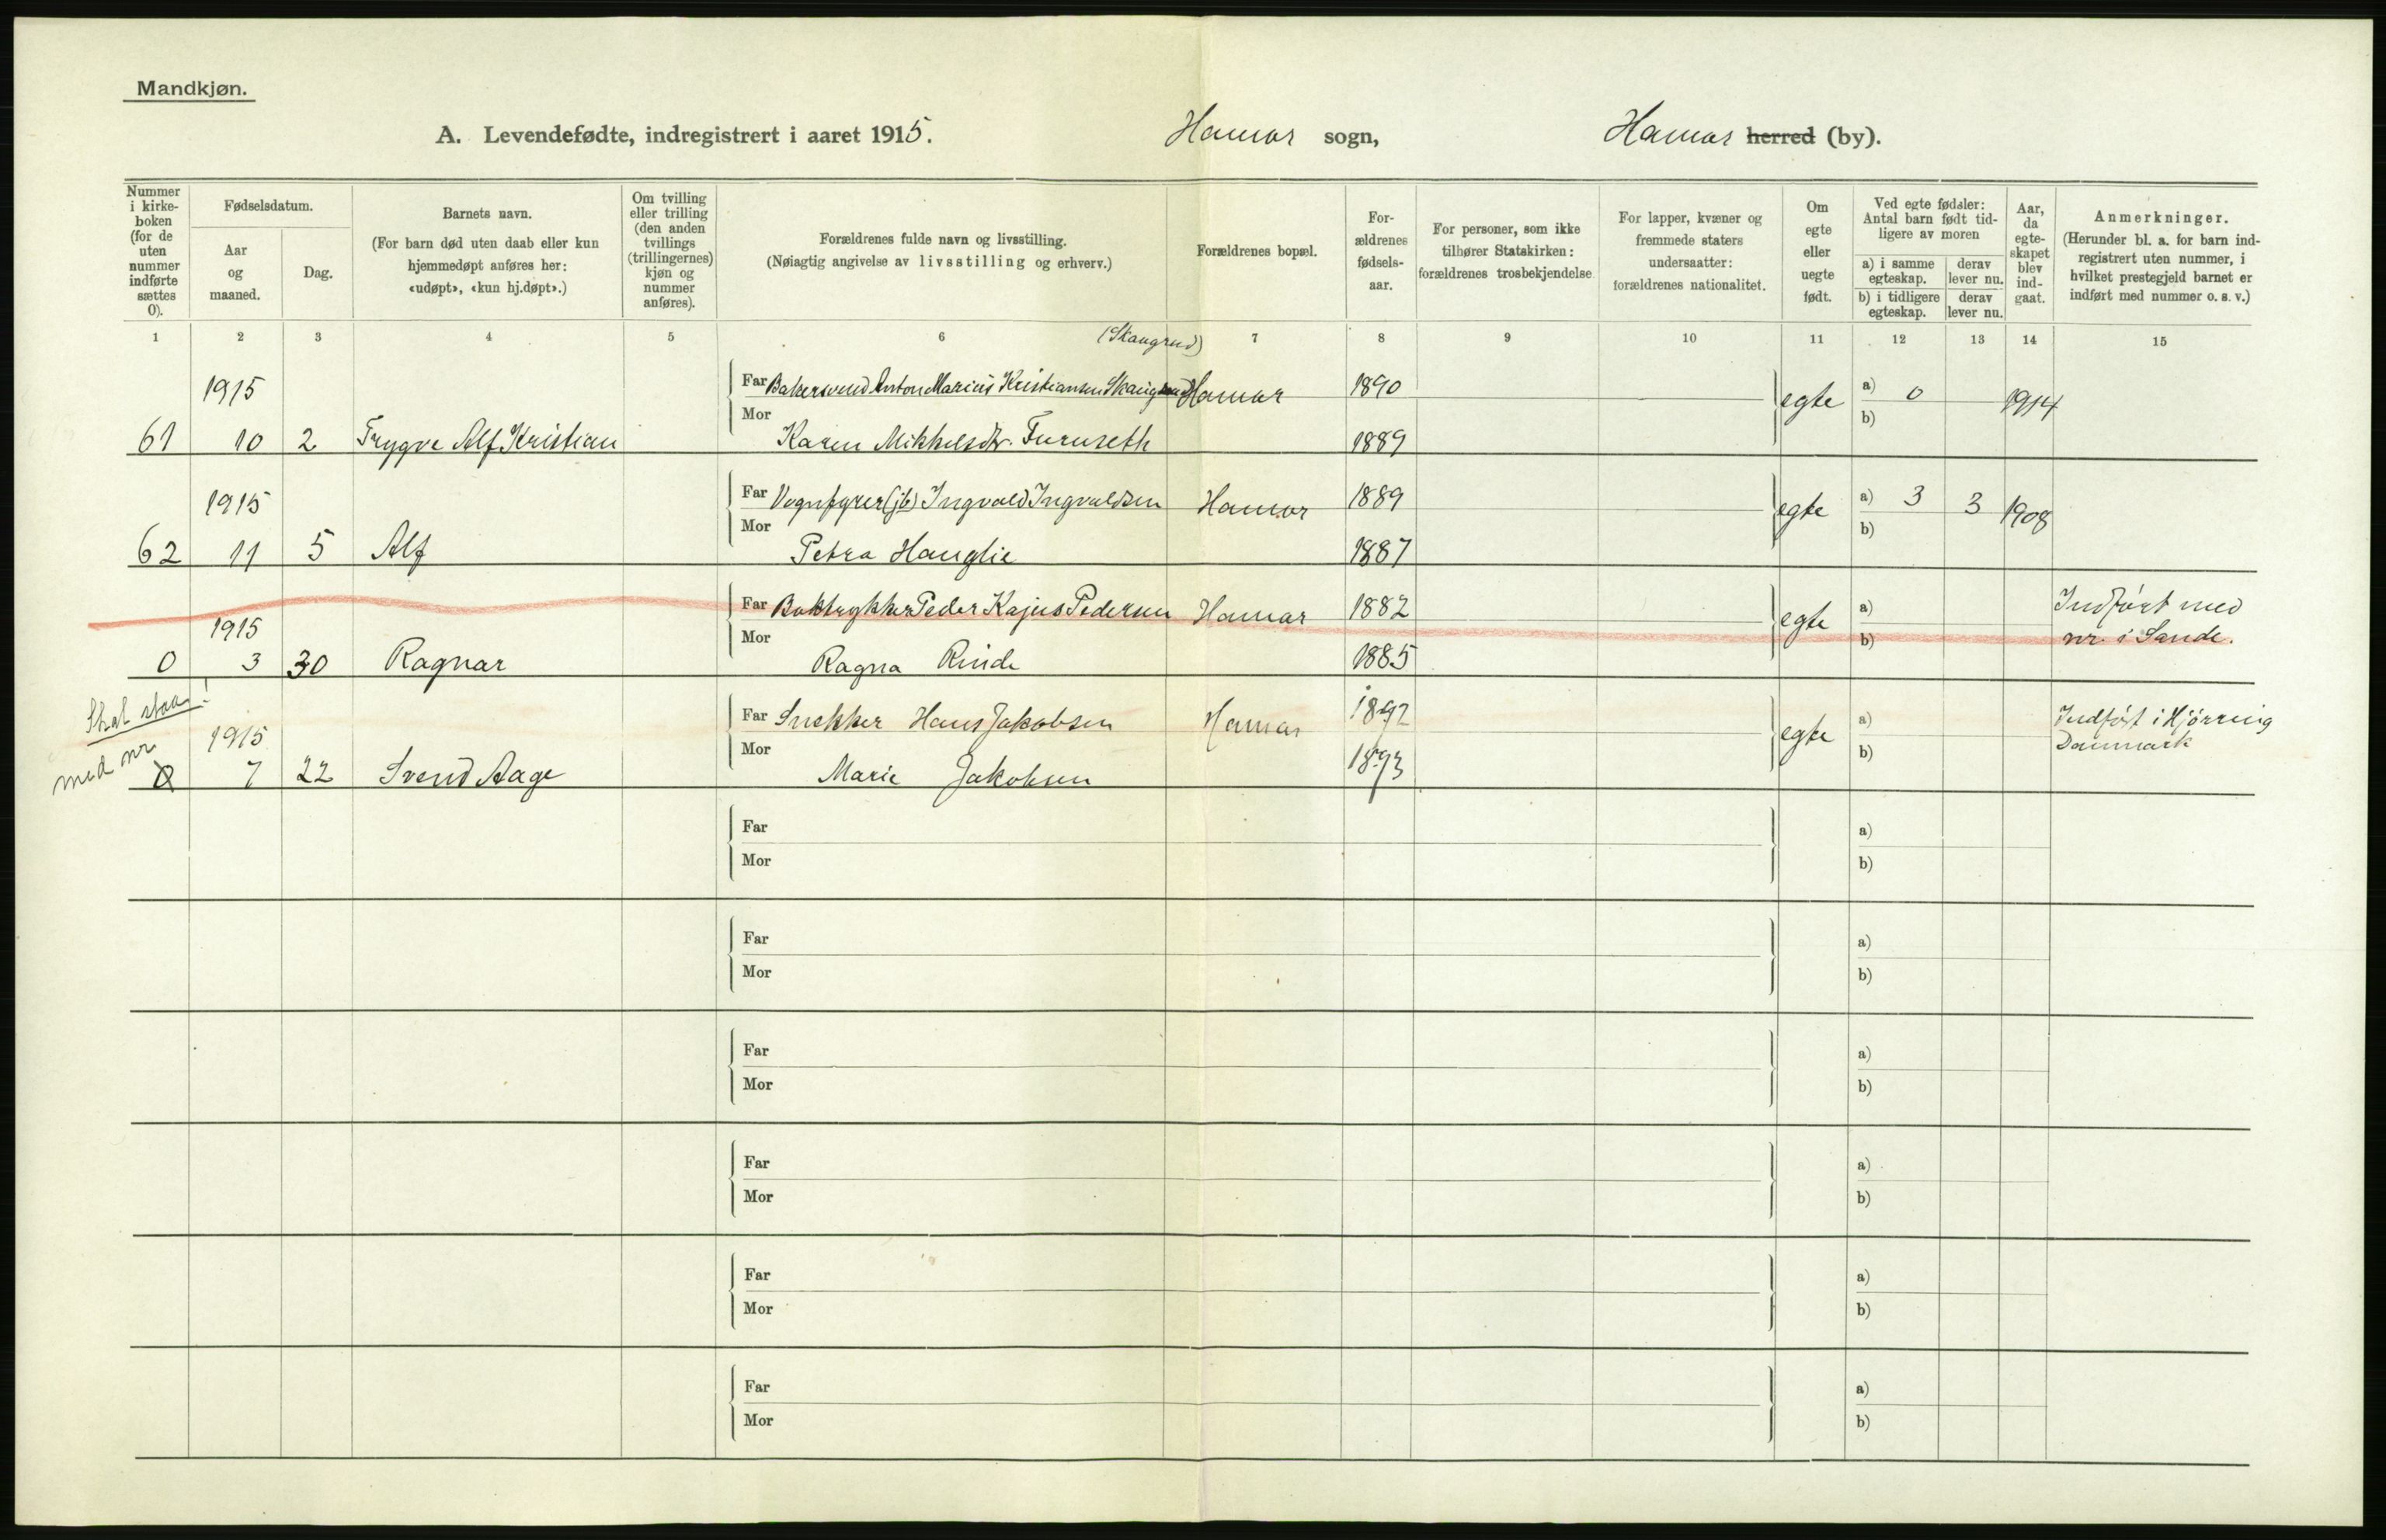 Mandkjøn.
A. Levendefødte, indregistrert i aaret 1915. Hamar sogn, Hamar herred (by).
Nummer i kirkeboken (for de uten nummer indførte sættes 0).
Fødselsdatum.
Aar og maaned.
Dag.
Barnets navn.
(For barn død uten daab eller kun hjemmedøpt anføres her: «udøpt», «kun hj.døpt».)
Om tvilling eller trilling (den anden tvillings (trillingernes) kjøn og nummer anføres).
Forældrenes fulde navn og livsstilling.
(Nøiagtig angivelse av livsstilling og erhverv.)
Forældrenes bopæl.
Forældrenes fødselsaar.
For personer, som ikke tilhører Statskirken: forældrenes trosbekjendelse
For lapper, kvæner og fremmede staters undersaatter: forældrenes nationalitet.
Om egte eller uegte født.
Ved egte fødsler: Antal barn født tidligere av moren
a) i samme egteskap.
derav lever nu.
b) i tidligere egteskap.
derav lever nu.
Aar, da egteskapet blev indgaat.
Anmerkninger.
(Herunder bl. a. for barn indregistrert uten nummer, i hvilket prestegjeld barnet er indført med nummer o. s. v.)
1 2 3 4 5 6 7 8 9 10 11 12 13 14 15
(Skaugrud)
1915 Far Bakersvend Anton Marius Kristiansen Hamar 1890 egte a) 0 1914
Mor b)
61 10 2 Trygve Alf Kristian Karen Mikkelsdtr. Furuseth 1889
1915 Far Vognfyrer (jb) Ingvald Ingvaldsen Hamar 1889 egte a) 3 3 1908
Mor b)
62 11 5 Alf Petra Hauglie 1887
Far Boktrykker Peder Kajus Pedersen Hamar 1882 egte a) Indført med
1915 Mor b) nr. i Sande.
0 3 30 Ragnar Ragna Rinde 1885
Skal staa!
med nr
Far Snekker Hans Jakobsen Hamar 1892 egte a) Indført i Hjørring
1915 Mor b) Danmark
0 7 22 Svend Aage Marie Jakobsen 1893
Far a)
Mor b)
Far a)
Mor b)
Far a)
Mor b)
Far a)
Mor b)
Far a)
Mor b)
Far a)
Mor b)